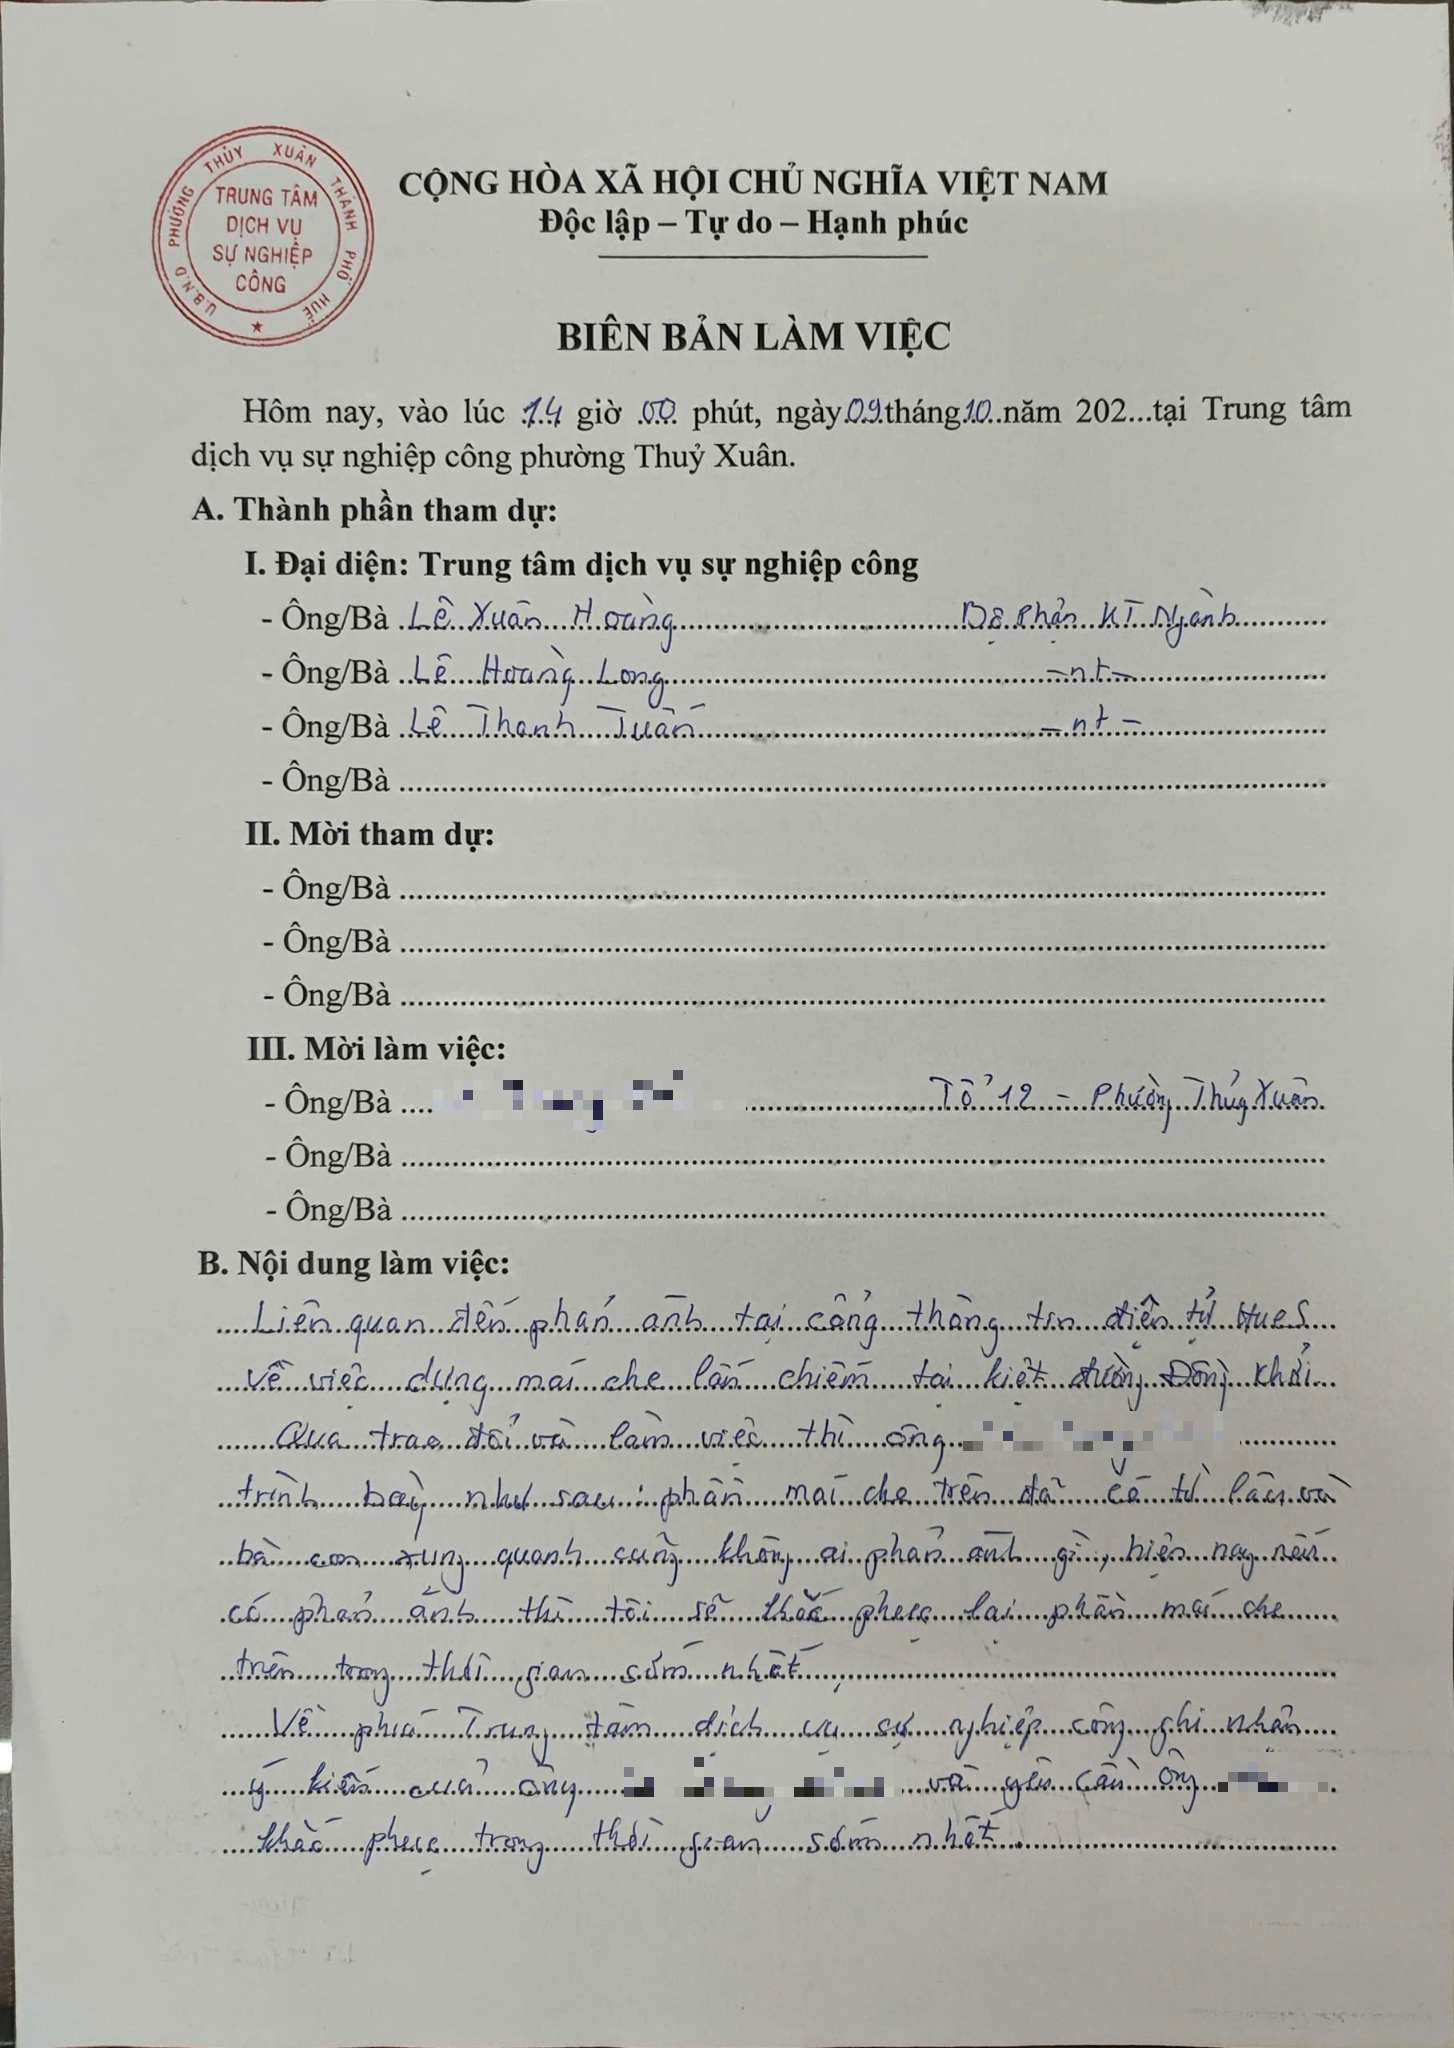 U.B.N.D PHƯỜNG THỦY XUÂN THÀNH PHỐ HUẾ
TRUNG TÂM
DỊCH VỤ
SỰ NGHIỆP
CÔNG
CỘNG HÒA XÃ HỘI CHỦ NGHĨA VIỆT NAM
Độc lập – Tự do – Hạnh phúc
BIÊN BẢN LÀM VIỆC
Hôm nay, vào lúc 14 giờ 00 phút, ngày 09 tháng 10 năm 202... tại Trung tâm
dịch vụ sự nghiệp công phường Thuỷ Xuân.
A. Thành phần tham dự:
I. Đại diện: Trung tâm dịch vụ sự nghiệp công
- Ông/Bà Lê Xuân Hoàng Bộ Phận KT Ngành
- Ông/Bà Lê Hoàng Long -nt-
- Ông/Bà Lê Thanh Tuấn -nt-
- Ông/Bà
II. Mời tham dự:
- Ông/Bà
- Ông/Bà
- Ông/Bà
III. Mời làm việc:
- Ông/Bà Tổ 12 - Phường Thủy Xuân
- Ông/Bà
- Ông/Bà
B. Nội dung làm việc:
Liên quan đến phản ánh tại cổng thông tin điện tử HueS
về việc dựng mái che lấn chiếm tại kiệt đường Đồng Khởi
Qua trao đổi và làm việc thì ông
trình bày như sau: phần mái che trên đã có từ lâu và
bà con xung quanh cũng không ai phản ánh gì, hiện nay nếu
có phản ánh thì tôi sẽ khắc phục lại phần mái che
trên trong thời gian sớm nhất.
Về phía Trung tâm dịch vụ sự nghiệp công ghi nhận
ý kiến của ông và yêu cầu ông
khắc phục trong thời gian sớm nhất.